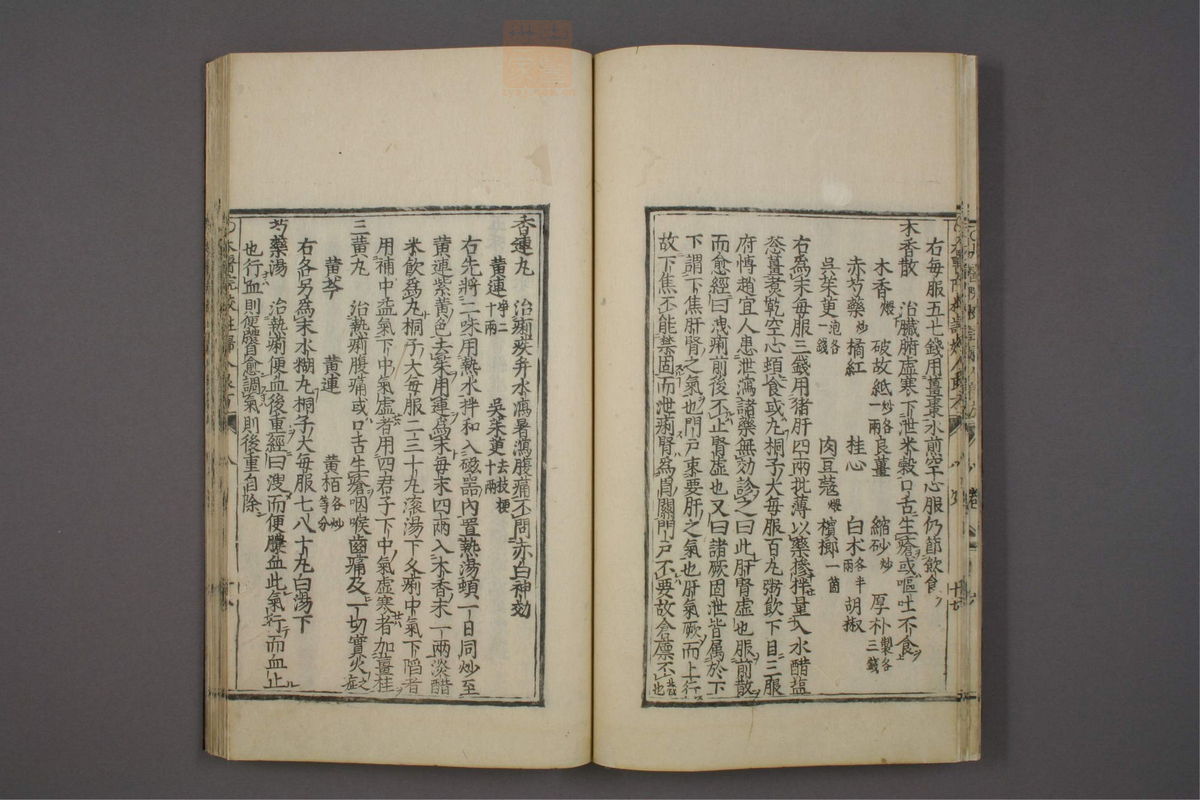 右每服五七錢用薑棗水煎空心服仍節飲食
木香散 治臟腑虛寒下泄米穀口舌生瘡或嘔吐不食
木香煨 破故紙炒各一兩 良薑 縮砂炒 厚朴製各三錢
赤芍藥炒 橘紅 桂心 白木各半兩 胡椒
吳茱萸泡各一錢 肉豆蔻煨 檳榔一箇
右為末每服三錢用猪肝四兩批薄以藥摻拌量入水醋鹽
葱薑煑乾空心頓食或丸桐子大每服百丸粥飲下日三服
府博趙宜人患泄瀉諸藥無効診之曰此肝腎虛也服前散
而愈經曰洩痢前後不止腎虛也又曰諸厥固泄皆属於下
下謂下焦肝腎之氣也門戸束要肝之氣也肝氣厥而上行
故下焦不能禁固而泄痢腎為胃關門戸不要故倉廪不
香連丸 治痢疾并水瀉暑瀉腹痛不問赤白神効
黄連净二十兩 吳茱萸去枝梗十兩
右先將二味用熱水拌和入磁器內置熱湯頓一日同炒至
黄連紫黄色去茱用連為末每末四兩入木香末一兩淡醋
米飲為丸桐子大每服二三十丸滚湯下久痢中氣下陷者
用補中益氣下中氣虛者用四君子下中氣虛寒者加薑桂
三黄丸 治熱痢腹痛或口舌生瘡咽喉齒痛及一切實火症
黄芩 黄連 黄栢各炒等分
右各另為末水糊丸桐子大每服七八十丸白湯下
芍藥湯 治熱痢便血後重經曰溲而便膿血此氣行而血止
也行血則便膿自愈調氣則後重自除